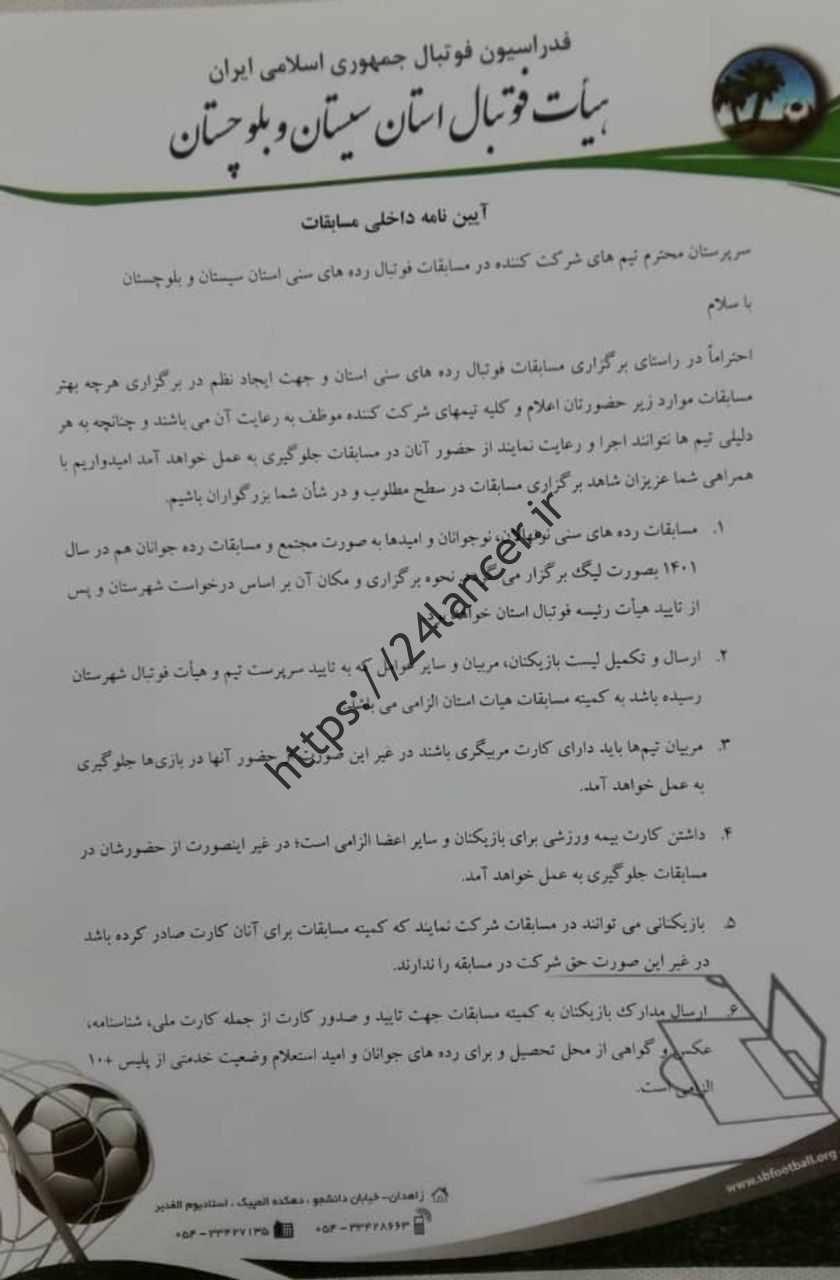 فدراسیون فوتبال جمهوری اسلامی ایران
هیأت فوتبال استان سیستان و بلوچستان
آیین نامه داخلی مسابقات
سرپرستان محترم تیم های شرکت کننده در مسابقات فوتبال رده های سنی استان سیستان و بلوچستان
با سلام
احتراماً در راستای برگزاری مسابقات فوتبال رده های سنی استان و جهت ایجاد نظم در برگزاری هرچه بهتر
مسابقات موارد زیر حضورتان اعلام و کلیه تیمهای شرکت کننده موظف به رعایت آن می باشند و چنانچه به هر
دلیلی تیم ها نتوانند اجرا و رعایت نمایند از حضور آنان در مسابقات جلوگیری به عمل خواهد آمد امیدواریم با
همراهی شما عزیزان شاهد برگزاری مسابقات در سطح مطلوب و در شأن شما بزرگواران باشیم.
۱. مسابقات رده های سنی نونهالان، نوجوانان و امیدها به صورت مجتمع و مسابقات رده جوانان هم در سال
۱۴۰۱ بصورت لیگ برگزار می نحوه برگزاری و مکان آن بر اساس درخواست شهرستان و پس
از تایید هیأت رئیسه فوتبال استان خواهد بود.
۲. ارسال و تکمیل لیست بازیکنان، مربیان و سایر عوامل که به تایید سرپرست تیم و هیأت فوتبال شهرستان
رسیده باشد به کمیته مسابقات هیات استان الزامی می باشد.
۳. مربیان تیم‌ها باید دارای کارت مربیگری باشند در غیر این صورت از حضور آنها در بازی‌ها جلوگیری
به عمل خواهد آمد.
۴. داشتن کارت بیمه ورزشی برای بازیکنان و سایر اعضا الزامی است؛ در غیر اینصورت از حضورشان در
مسابقات جلوگیری به عمل خواهد آمد.
۵. بازیکنانی می توانند در مسابقات شرکت نمایند که کمیته مسابقات برای آنان کارت صادر کرده باشد
در غیر این صورت حق شرکت در مسابقه را ندارند.
۶. ارسال مدارک بازیکنان به کمیته مسابقات جهت تایید و صدور کارت از جمله کارت ملی، شناسنامه،
عکس و گواهی از محل تحصیل و برای رده های جوانان و امید استعلام وضعیت خدمتی از پلیس +۱۰
الزامی است.
زاهدان- خیابان دانشجو ، دهکده المپیک ، استادیوم الغدیر
۰۵۴ – ۳۳۴۲۸۶۶۳
۰۵۴ – ۳۳۴۲۷۱۳۵
www.sbfootball.org
https://24lancer.ir